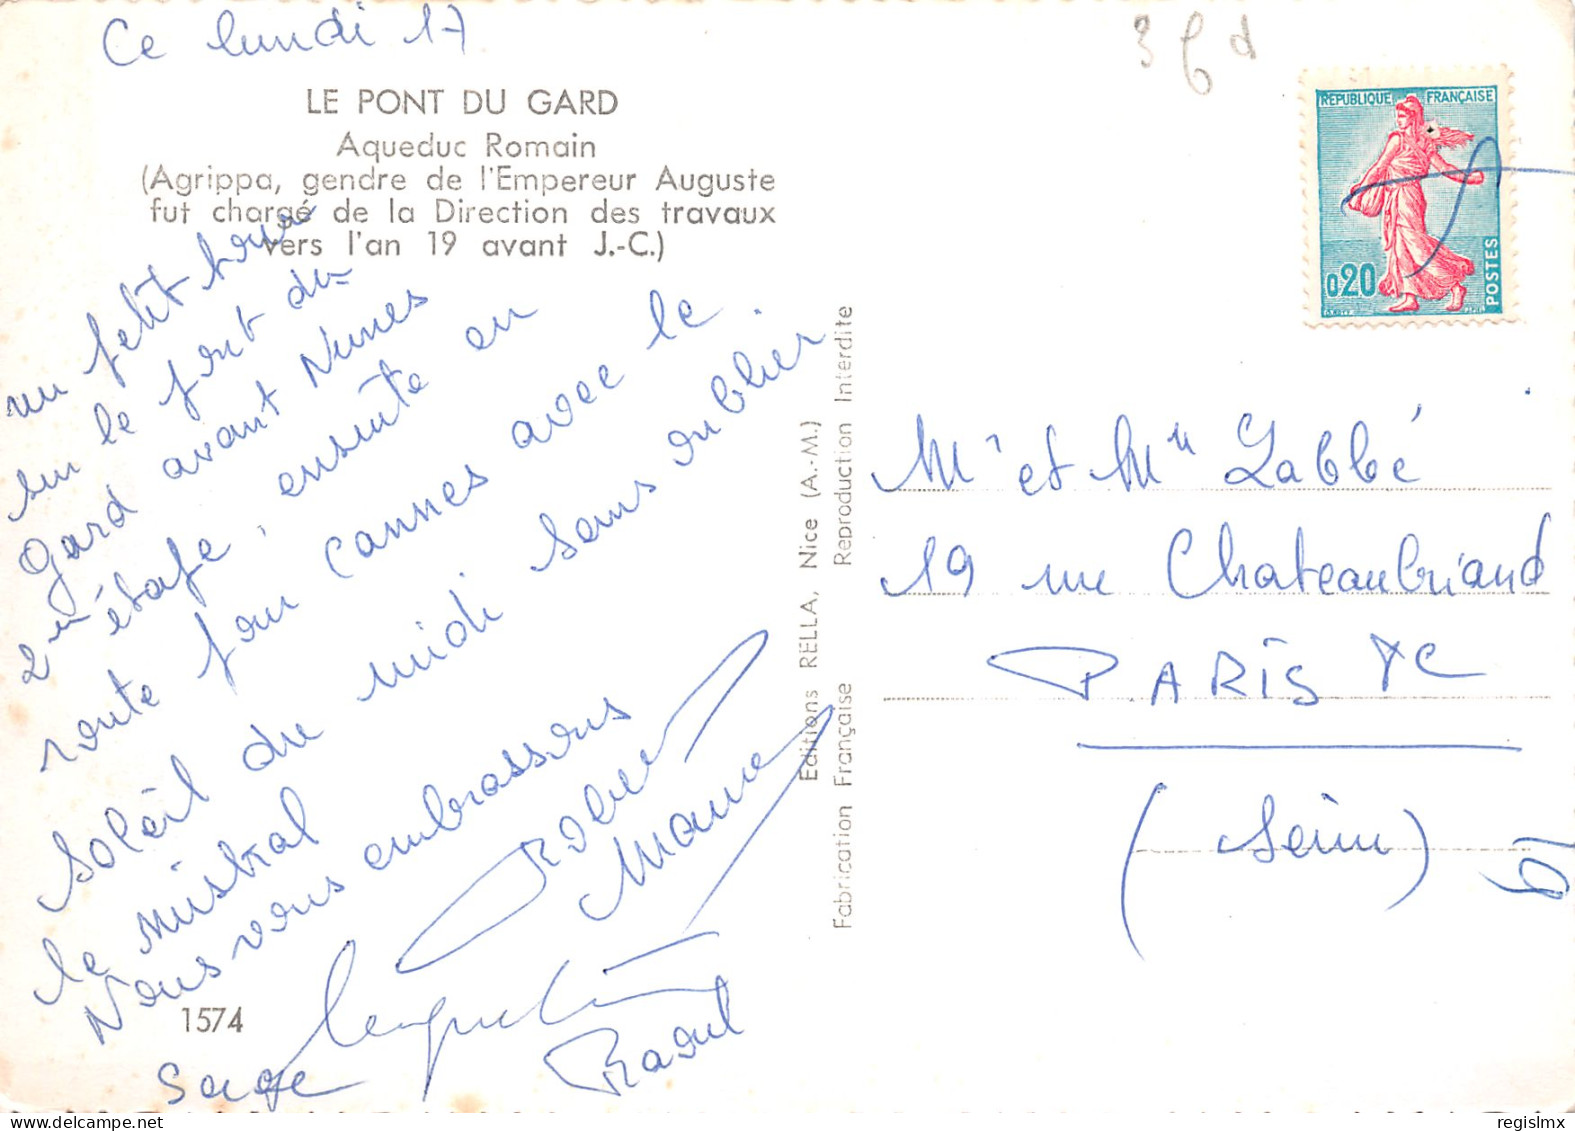 Ce lundi 17
LE PONT DU GARD
Aqueduc Romain
(Agrippa, gendre de l'Empereur Auguste
fut chargé de la Direction des travaux
vers l'an 19 avant J.-C.)
un petit
sur le pont du
Gard avant Nimes
2me étape, ensuite en
route pour Cannes avec le
Soleil du midi sans oublier
le mistral
Nous vous embrassons
Robert
Mame
Jacqueline
Raoul
Serge
1574
Editions RELLA, Nice (A.-M.)
Fabrication Française Reproduction Interdite
REPUBLIQUE FRANÇAISE
0,20
POSTES
Mr et Me Labbé
19 rue Chateaubriand
PARIS
(Seine)
19
regislmx